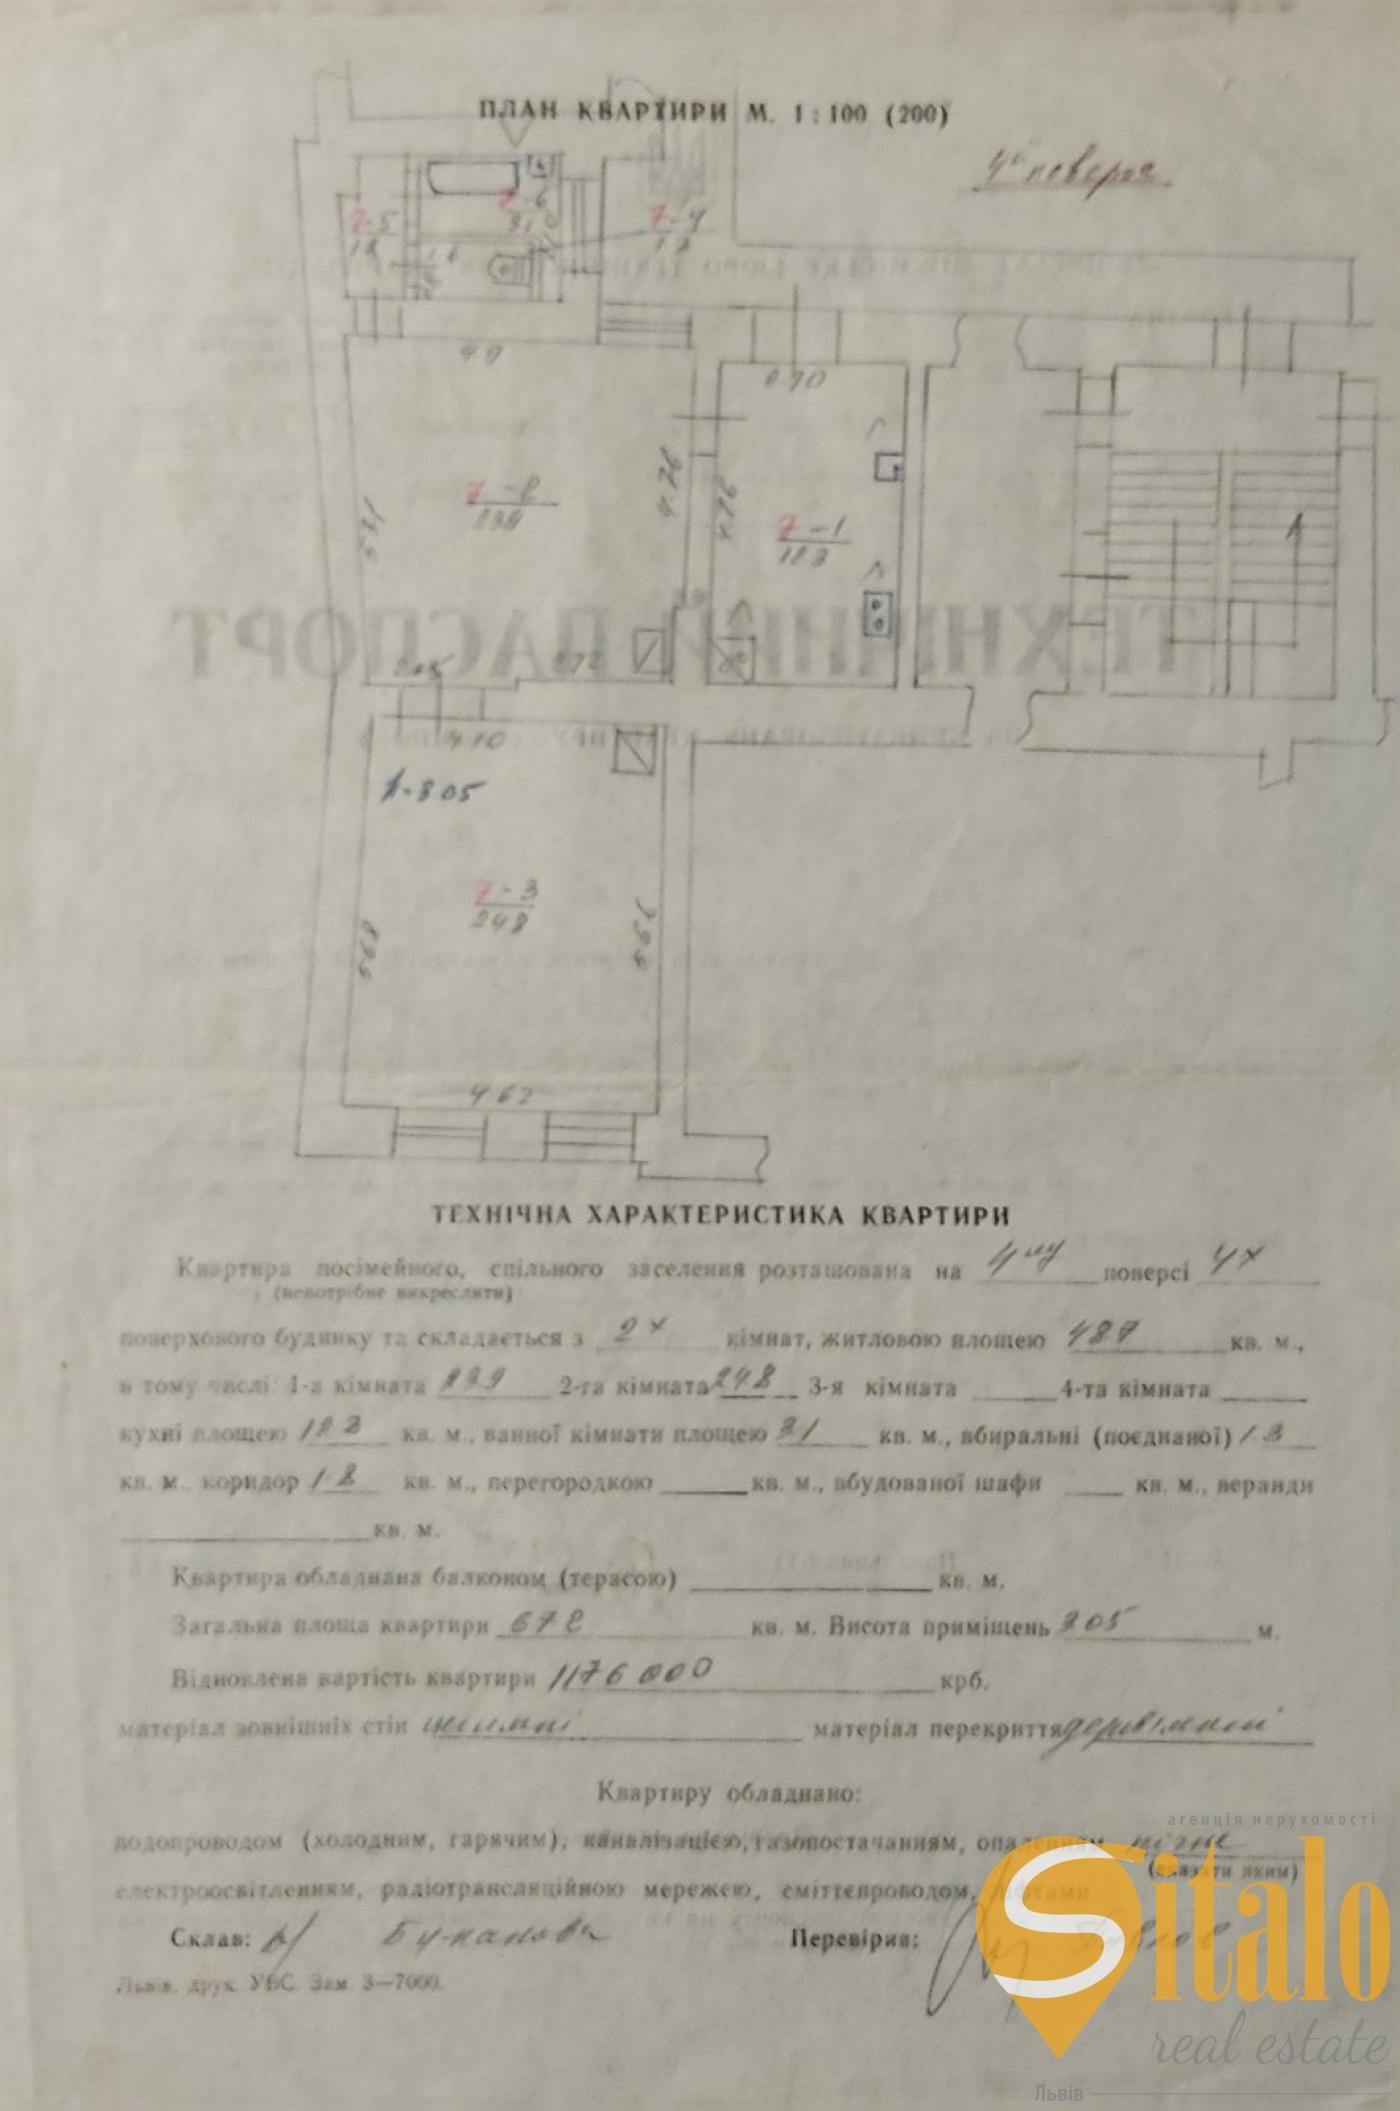 ПЛАН КВАРТИРИ М. 1 : 100 (200)
4й поверх
7-6
3,0
7-5
18
7-4
13
16
4 9
2 70
4 26
4 26
7 -2
239
7 -1
123
2 05
272
4 10
h-305
7 - 3
248
595
4 62
ТЕХНІЧНА ХАРАКТЕРИСТИКА КВАРТИРИ
Квартира посімейного, спільного заселення розташована на 4му поверсі 4х
(непотрібне викреслити)
поверхового будинку та складається з 2х кімнат, житловою площею 487 кв. м.,
в тому числі: 1-а кімната 239 2-га кімната 248 3-я кімната 4-та кімната
кухні площею 123 кв. м., ванної кімнати площею 31 кв. м., вбиральні (поєднаної) 1 3
кв. м., коридор 1 8 кв. м., перегородкою кв. м., вбудованої шафи кв. м., веранди
кв. м.
Квартира обладнана балконом (терасою) кв. м.
Загальна площа квартири 672 кв. м. Висота приміщень 305 м.
Відновлена вартість квартири 1176 000 крб.
матеріал зовнішніх стін цегляні матеріал перекриття деревляний
Квартиру обладнано:
водопроводом (холодним, гарячим), каналізацією, газопостачанням, опаленням пічне
(вказати яким)
електроосвітленням, радіотрансляційною мережею, сміттєпроводом, ліфтами.
Склав: Перевірив:
Львів. друк. УВС. Зам. 3—7000.
агенція нерухомості
Sitalo
real estate
Львів